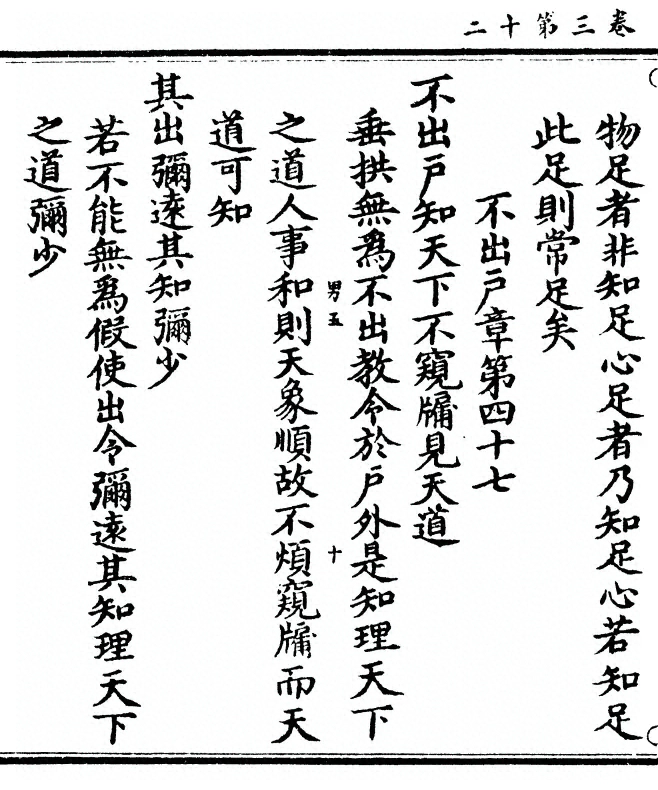 卷三第十二
物足者非知足心足者乃知足心若知足
此足則常足矣
不出戸章第四十七
不出戸知天下不窺牖見天道
垂拱無爲不出教令於戸外是知理天下
男五
十
之道人事和則天象順故不煩窺牖而天
道可知
其出彌遠其知彌少
若不能無爲假使出令彌遠其知理天下
之道彌少